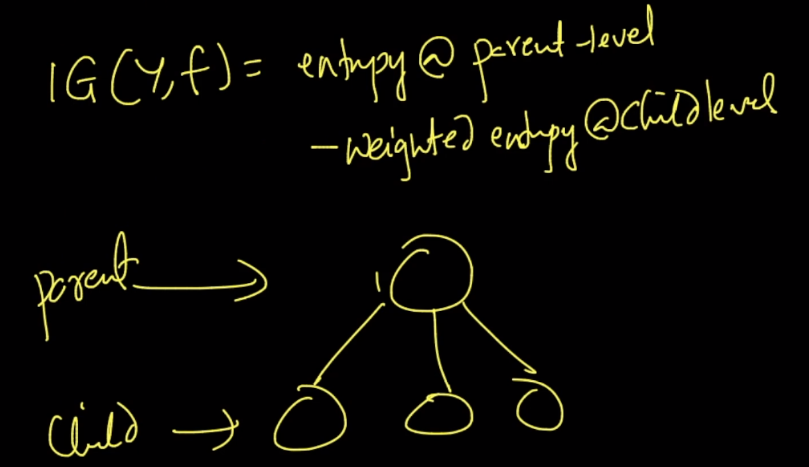 IG(Y,f) = entropy @ parent-level
- weighted entropy @ child level
parent
child